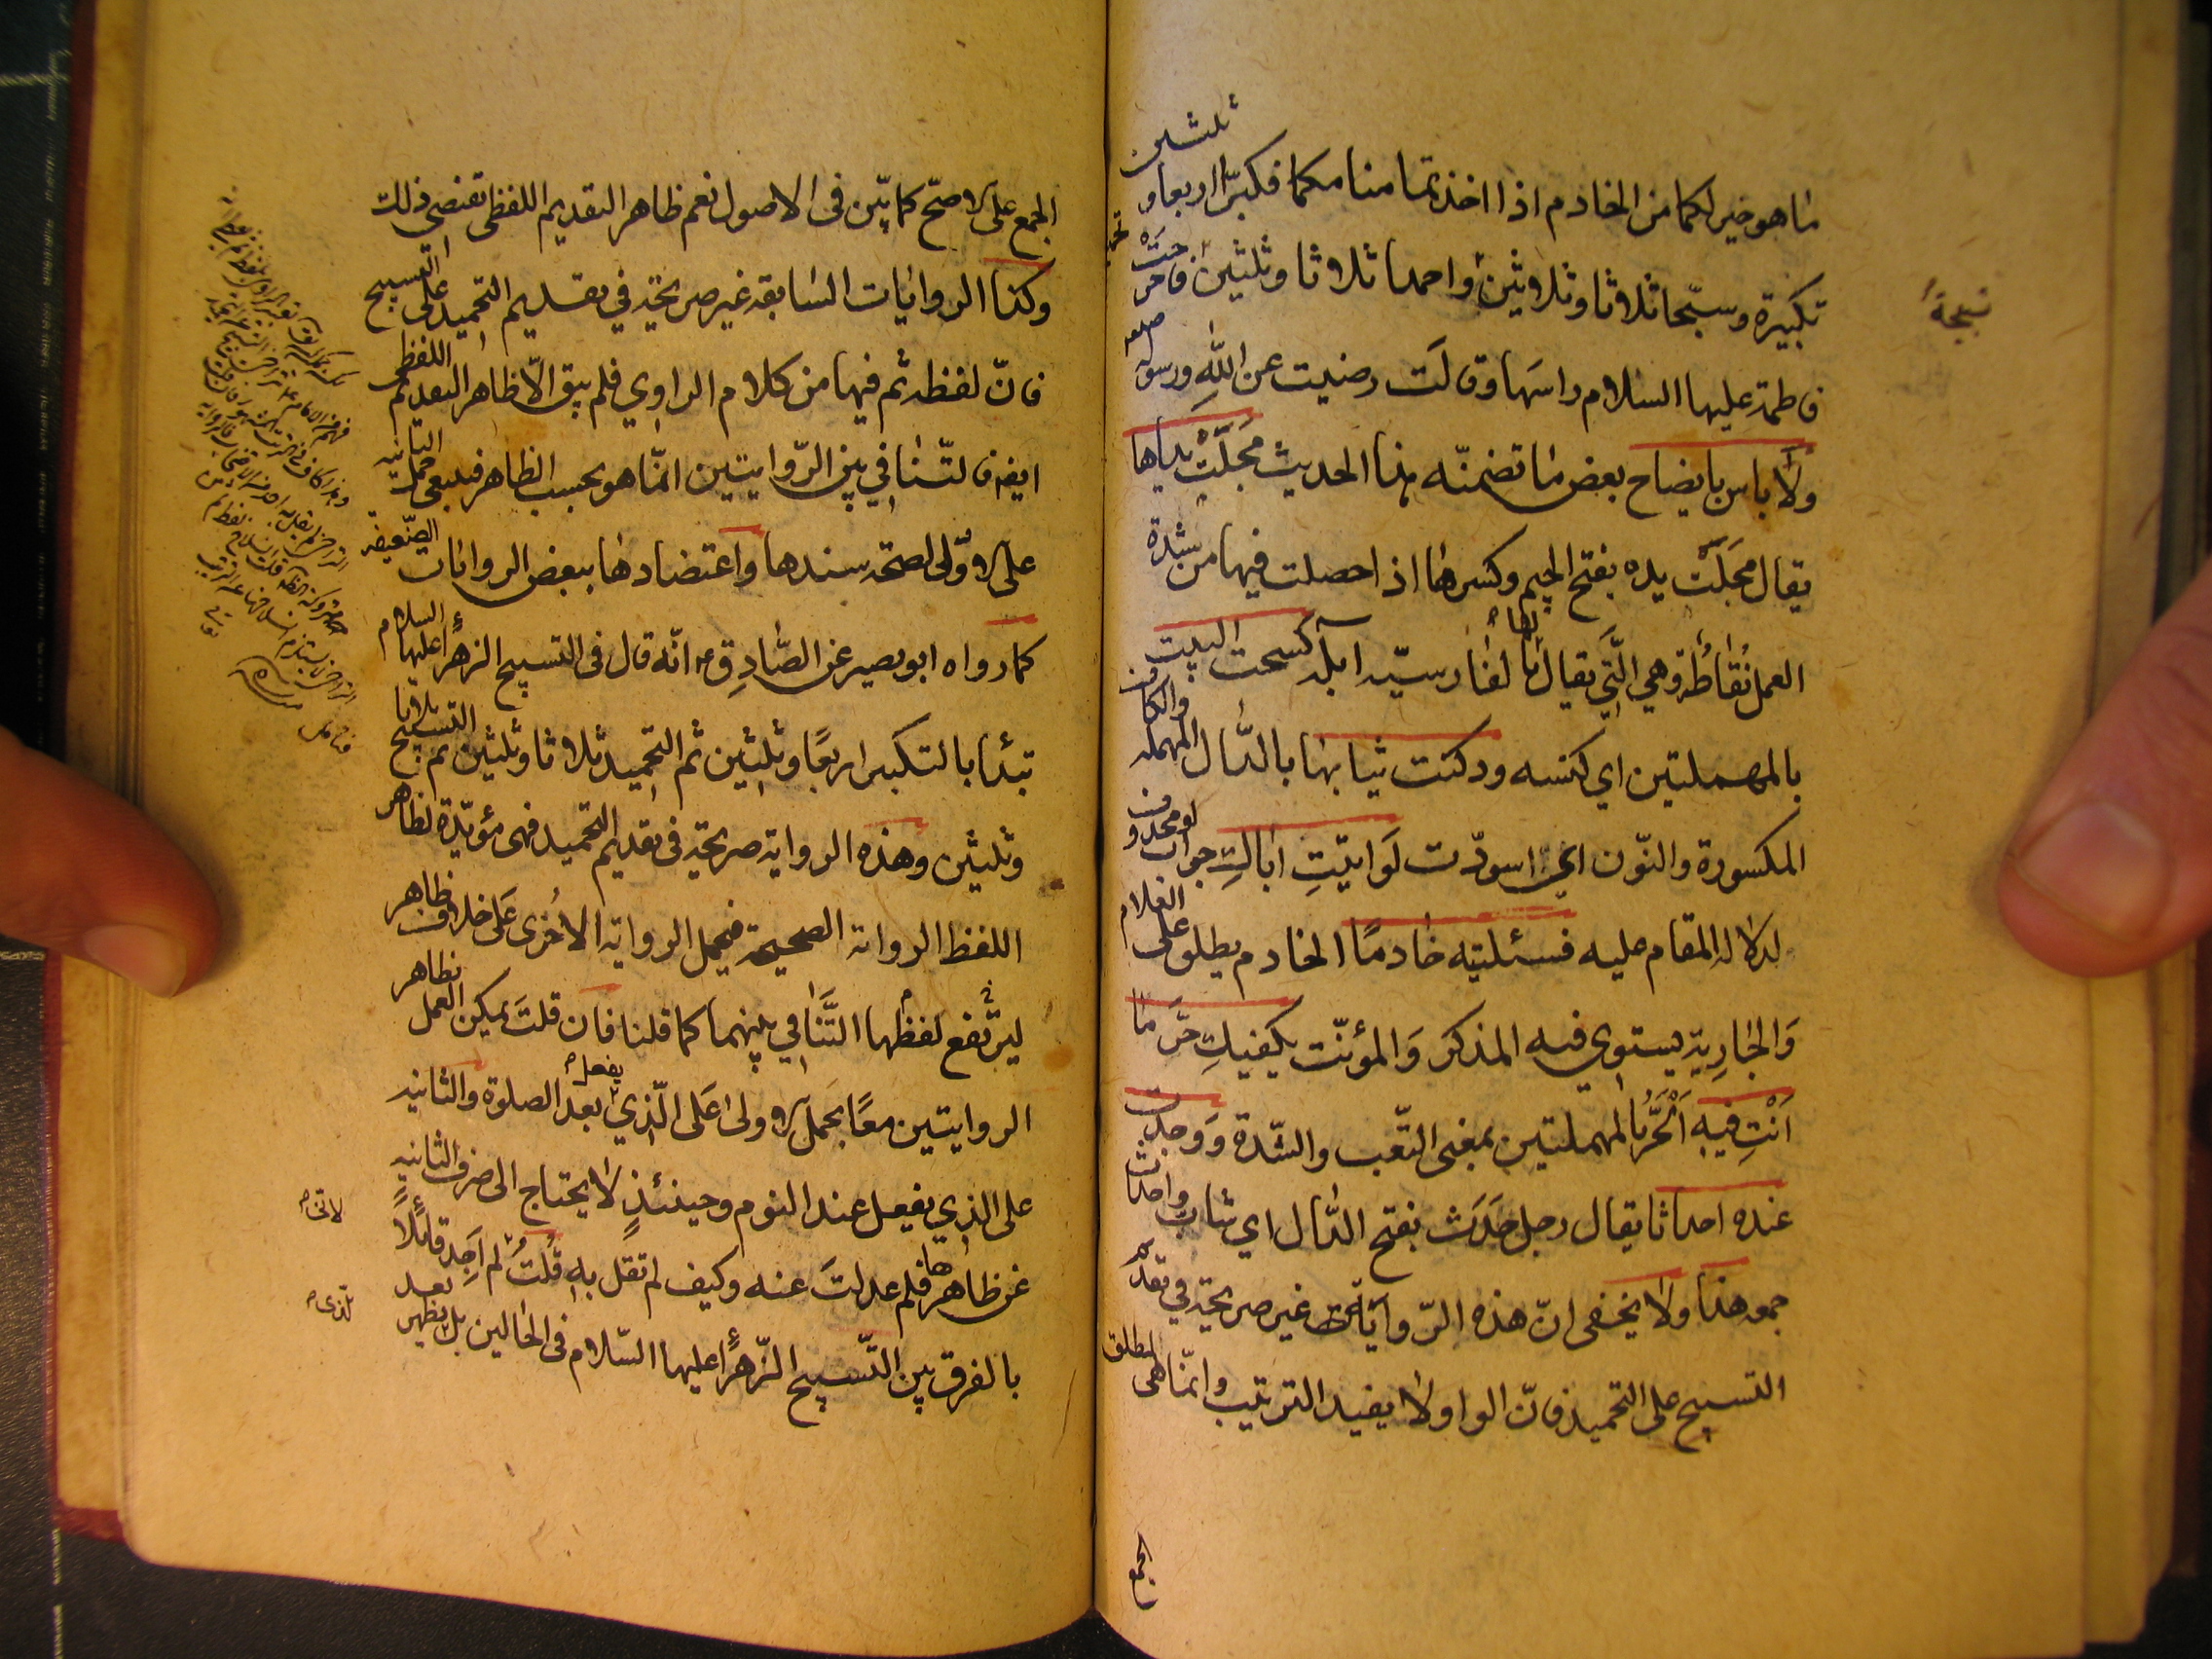 ما هو خير لكما من الخادم اذا اخذتما منامكما فكبّرا اربعا و ثلثين
تكبيرة و سبّحا ثلاثا و ثلاثين و احمدا ثلاثا و ثلثين فاخرجت
تسبيحة
فاطمة عليها السلام راسها و قالت رضيت عن الله و رسوله
و لا باس بايضاح بعض ما تضمنّه هذا الحديث مَجَلَتْ يداها
يقال مجَلَتْ يده بفتح الجيم و كسرها اذ احصلت فيها من شدة
العمل نُقاطة و هي الّتي يقال لها بالفارسيّه آبله كسحت البيت
بالمهملتين اي كنسه و دكنت ثيابها بالدّال المهمله و الكاف
المكسورة و النّون اي اسودّت لَو اتيتِ اباكِ جواب لو محذوف
لدلالة المقام عليه فسئلتيه خادمًا الخادم يطلق على الغلام
وَ الجارية يستوي فيه المذكر وَ المؤنّث يكفيك حَرَّ ما
اَنْتِ فيهِ اَلْحَرُّ بالمهملتين بمعنى التّعب و الشّدة وَ وجدت
عنده احداثا يقال رجل حَدَث بفتح الدّال اي شاب و احداث
جمعه هذا و لا يخفى انّ هذه الرّواية غير صريحة في تقدّم
التسبيح على التحميد فانّ الواو لا يفيد الترتيب و انّما هى لمطلق
الجمع
الجمع على الاصحّ كما بيّن فى الاصول نعم ظاهر التقديم اللفظى تقتضى ذلك
و كذا الروايات السابقه غير صريحة في تقديم التحميد على التسبيح
فانّ لفظه ثم فيها من كلام الراوي فلم يبق الّا ظاهر التقديم اللفظى
ايضا فالتّنافي بين الرّوايتين انمّا هو بحسب الظاهر فينبغى حمل الثانيه
على الاوّلى لصحة سندها و اعتضادها ببعض الروايات الضّعيفه
كما رواه ابو بصير عن الصّادِق ع انّه قال فى التسبيح الزهرأ عليها السلام
تبدأ بالتكبير اربعًا و ثلثين ثم التحميد ثلاثا و ثلثين ثم التسبيح ثلاثا
و ثلثين و هذه الرواية صريحة فى تقديم التحميد فهى مؤيّدة لظاهر
اللفظ الرواية الصحيحة فيحمل الرواية الاُخرى عَلى خلاف ظاهر
ليرتفع لفظها التّنافي بينهما كما قلنا فان قلتَ يمكن العمل بظاهر
الروايتين معًا بحمل الاولى عَلى الّذي يفعل بعد الصلوة و الثانيه
على الذي يفعل عند النوم و حينئذٍ لا يحتاج الى صرف الثانيه
عن ظاهرها فلم عدلتَ عنه و كيف لم تقل به قُلتُ لم اَجِد قائلًا
بالفرق بين التّسبيح الزّهرأ عليها السّلام فى الحالين بل يظهر بعد